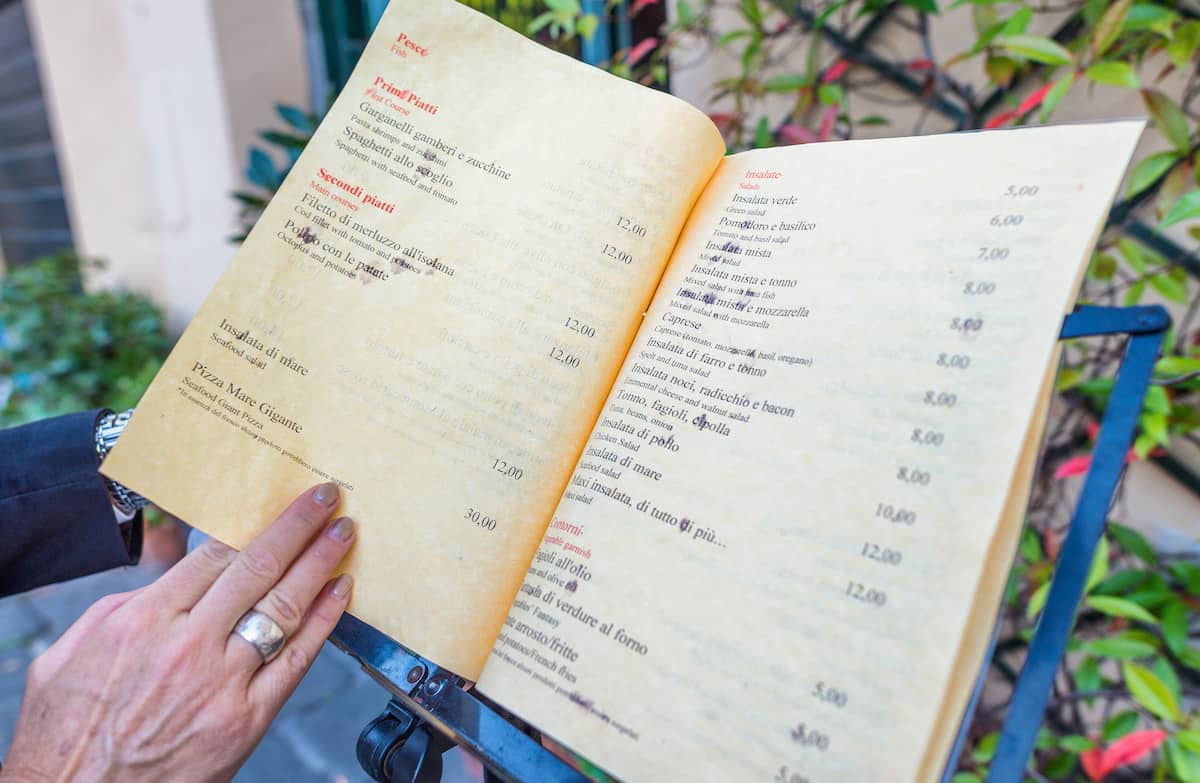 Pesce
Fish
Primi Piatti
First Course
Garganelli gamberi e zucchine
Pasta shrimps and zucchini
12,00
Spaghetti allo scoglio
Spaghetti with seafood and tomato
12,00
Secondi piatti
Main courses
Filetto di merluzzo all'isolana
Cod fillet with tomato and potatoes
12,00
Polipo con le patate
Octopus and potatoes
12,00
Insalata di mare
Seafood salad
12,00
Pizza Mare Gigante
Seafood Giant Pizza
30,00
*In assenza del fresco alcuni prodotti potrebbero essere surgelati
Insalate
Salads
Insalata verde 5,00
Green salad
Pomodoro e basilico 6,00
Tomato and basil salad
Insalata mista 7,00
Mixed salad
Insalata mista e tonno 8,00
Mixed salad with tuna fish
Insalata mista e mozzarella 8,00
Mixed salad with mozzarella
Caprese 8,00
Caprese (tomato, mozzarella, basil, oregano)
Insalata di farro e tonno 8,00
Spelt and tuna salad
Insalata noci, radicchio e bacon 8,00
Emmental cheese and walnut salad
Tonno, fagioli, cipolla 8,00
Tuna, beans, onion
Insalata di pollo 10,00
Chicken Salad
Insalata di mare 12,00
Seafood salad
Maxi insalata, di tutto di più... 12,00
Maxi salad
Contorni
garnish
all'olio 5,00
and olive oil
di verdure al forno 8,00
Fantasy
arrosto/fritte 5,00
potatoes/French fries